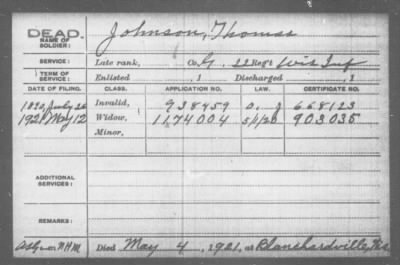 DEAD.
NAME OF SOLDIER:
Johnson, Thomas
SERVICE:
Late rank, Co. G, 22 Reg't Wis Inf
TERM OF SERVICE:
Enlisted , 1 Discharged , 1
DATE OF FILING. CLASS. APPLICATION NO. LAW. CERTIFICATE NO.
1890 July 26 Invalid, 938459 668123
1921 May 12 Widow, 1174004 5/1/20 903035
Minor,
ADDITIONAL SERVICES:
REMARKS:
Died May 4, 1921, at Blanchardville, Wis